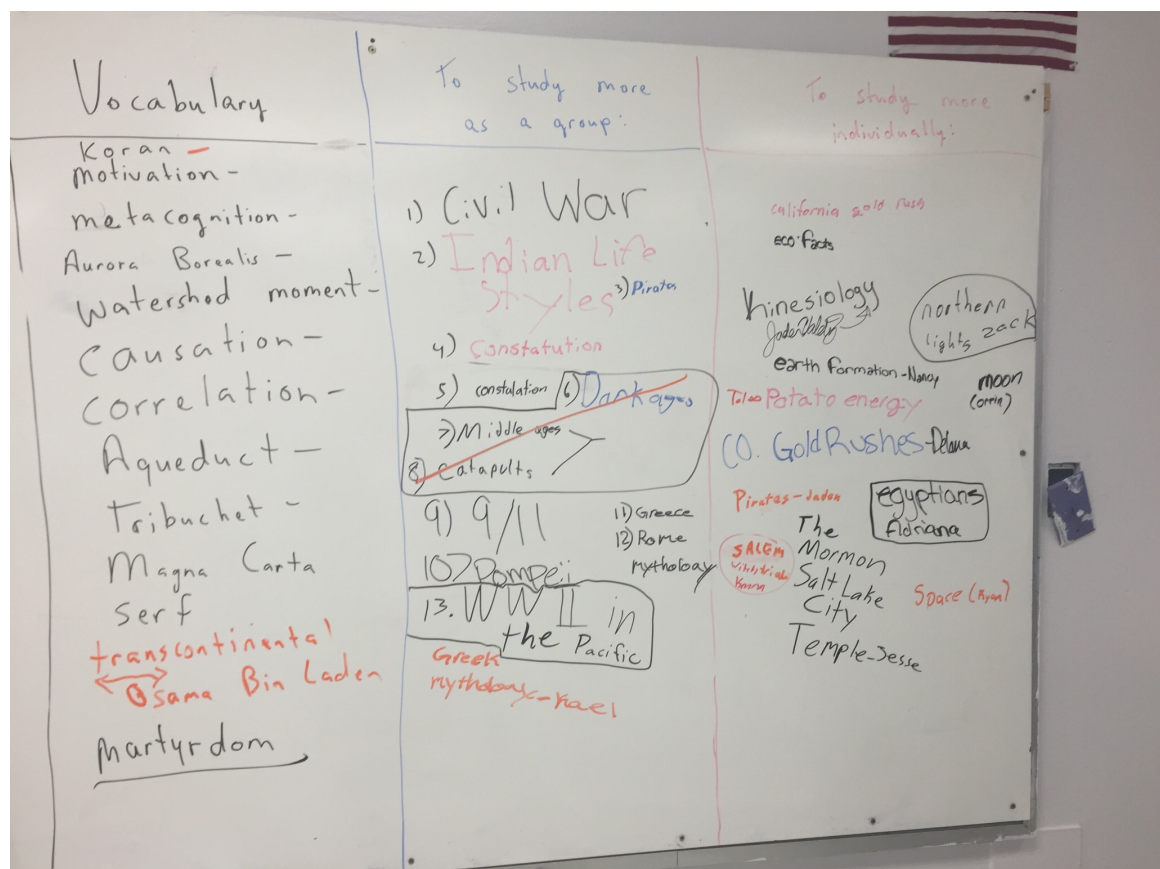 Vocabulary
Koran -
motivation -
metacognition -
Aurora Borealis -
Watershed moment -
Causation -
Correlation -
Aqueduct -
Tribuchet -
Magna Carta
serf
transcontinental
Osama Bin Laden
martyrdom
To study more
as a group:
1) Civil War
2) Indian Life
Styles
3) Pirates
4) Constatution
5) constalation
6) Dark ages
7) Middle ages
8) Catapults
9) 9/11
10) Pompei
11) Greece
12) Rome
mytholoay
13. WWII in
the Pacific
Greek
mytholoay - Kael
To study more
individually:
california gold rush
eco-facts
Kinesiology
northern
lights zack
earth formation - Nancy
moon
(orrin)
Potato energy
CO. Gold Rushes - Delana
Pirates - Jaden
egyptians
Adriana
The
Mormon
Salt Lake
City
Temple - Jesse
SALEM
Space (Ryan)